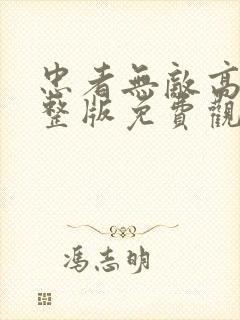 忠者無敵高
整版免費觀
馮志明